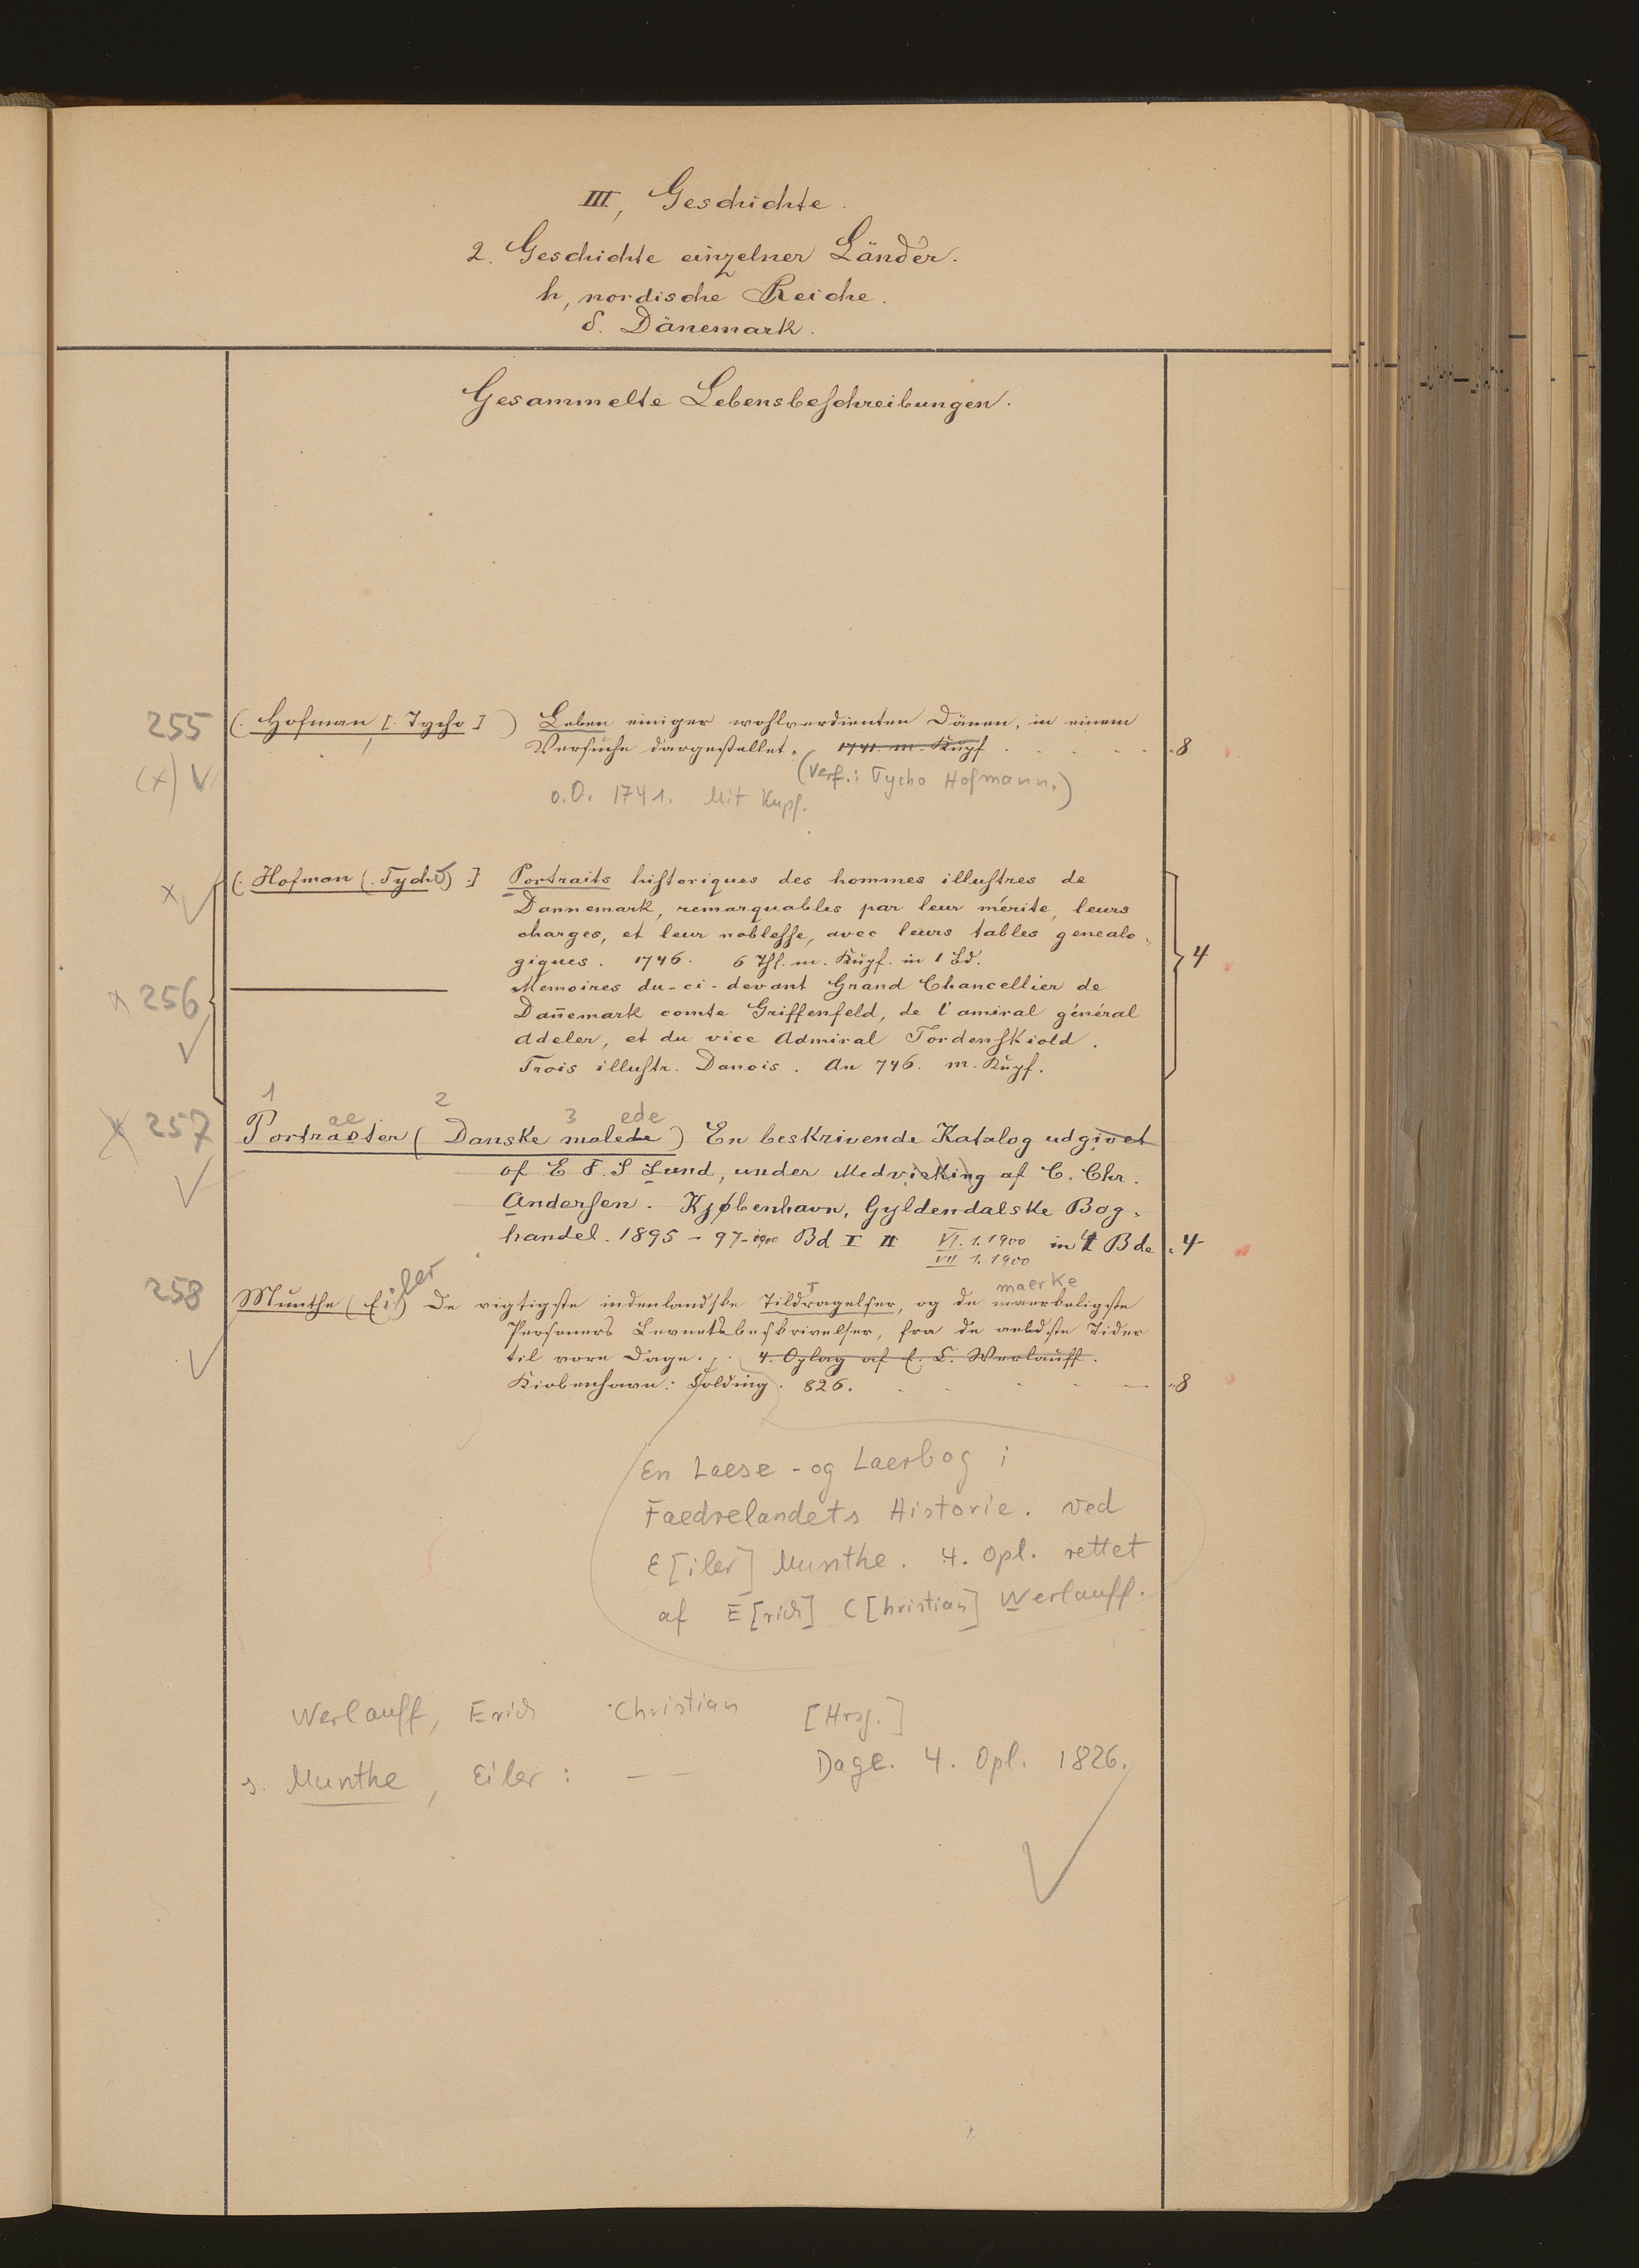 III, Geschichte.
2. Geschichte einzelner Länder.
h, nordische Reiche.
δ. Dänemark.
Gesammelte Lebensbeschreibungen.
255 (. Hofman [. Tycho ] ) Leben einiger wohlverdienten Dänen, in einem
Versuche dargestellet. 1741. m. Kupf . . . . . 8
(x) (Verf.: Tycho Hofmann.)
o.O. 1741. Mit Kupf.
x (. Hofman (. Tycho) .] Portraits historiques des hommes illustres de
Dannemark, remarquables par leur mérite, leurs
charges, et leur noblesse, avec leurs tables genealo-
giques. 1746. 6 Thl. m. Kupf. in 1 Bd. 4
x 256 Memoires du-ci-devant Grand Chancellier de
Dan̄emark comte Griffenfeld, de l'amiral général
Adeler, et du vice Admiral Tordenskiold.
Trois illustr. Danois. An 746. m. Kupf.
1 2 3 ae ede
x 257 Portraeter (Danske malede) En beskrivende Katalog udgivet
of E F. S Lund, under Medvirking af C. Chr.
Andersen. Kjøbenhavn, Gyldendalske Bog-
handel. 1895-97-1900 Bd I II VI. 1. 1900 in 4 Bde. 4
VII 1. 1900
iler T maerke
258 Munthe (Ei) De vigtigste indenlandske Tildragelser, og de maerkeligste
Personers Levnetsbeskrivelser, fra de aeldste Tider
til vore Dage. 4. Oplag af E. C. Werlauff.
Kiobenhavn: Solding. 826. . . . . 8
En Laese-og Laerbog i
Faedrelandets Historie. ved
E[iler] Munthe. 4. Opl. rettet
af E[rich] C[hristian] Werlauff.
Werlauff, Erich Christian [Hrsg.]
s. Munthe, Eiler: — — Dage. 4. Opl. 1826.